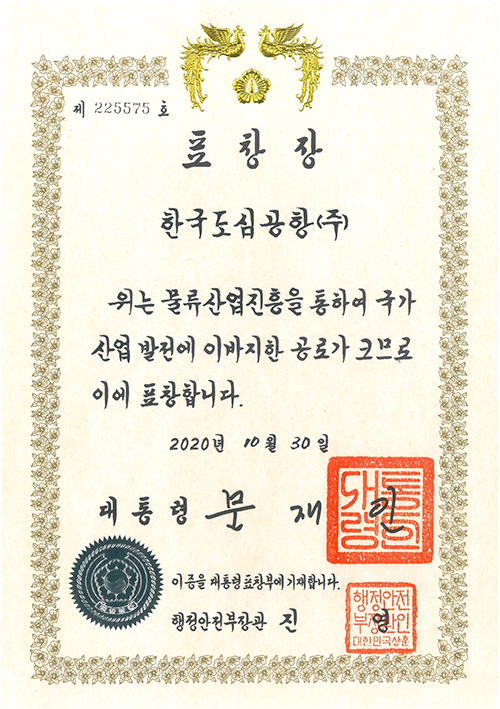 제 225575 호
표창장
한국도심공항(주)
위는 물류산업진흥을 통하여 국가
산업 발전에 이바지한 공로가 크므로
이에 표창합니다.
2020년 10월 30일
대통령 문재인
대통령인
이 증을 대통령표창부에 기재합니다.
행정안전부장관 진영
행정안전
부장관인
대한민국상훈